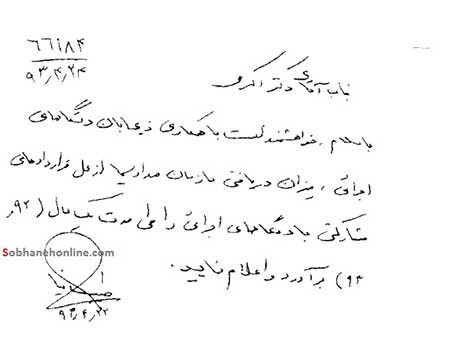 ۶۶۱۸۴
۹۳٫۴٫۲۴
جناب آقای دکتر اکرمی
با سلام، خواهشمند است با همکاری ذیحسابان دستگاههای
اجرائی، میزان دریافتی سازمان صدا و سیما از محل قراردادهای
مشارکتی با دستگاههای اجرائی را طی مدت یک سال (۹۲ و
۹۳) برآورد و اعلام نمایید.
Sobhanehonline.com
۹۳٫۴٫۲۲